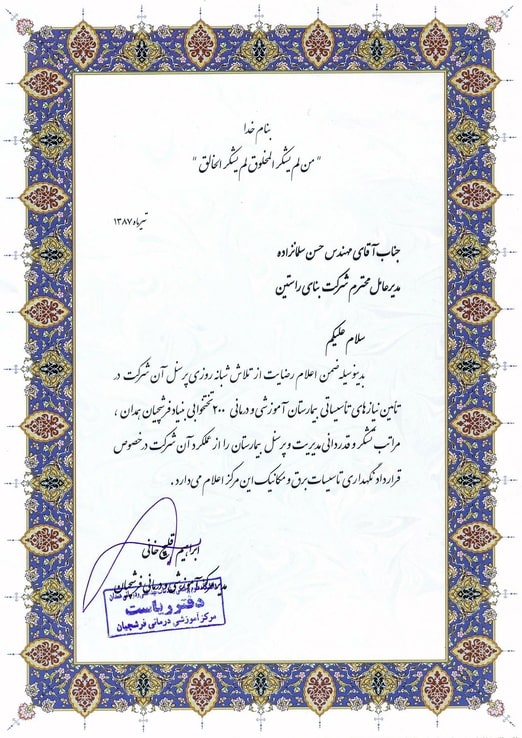 بنام خدا
"من لم یشکر المخلوق لم یشکر الخالق"
تیرماه ۱۳۸۷
جناب آقای مهندس حسن سلمانزاده
مدیر عامل محترم شرکت بنای راستین
سلام علیکم
بدینوسیله ضمن اعلام رضایت از تلاش شبانه روزی پرسنل آن شرکت در
تأمین نیازهای تأسیساتی بیمارستان آموزشی و درمانی ۲۰۰ تختخوابی بنیاد فرشچیان همدان ،
مراتب تشکر و قدردانی مدیریت و پرسنل بیمارستان را از عملکرد آن شرکت در خصوص
قرارداد نگهداری تاسیسات برق و مکانیک این مرکز اعلام می دارد .
ابراهیم قلیچ خانی
مرکز آموزشی و درمانی فرشچیان
دفتر ریاست
مرکز آموزشی درمانی فرشچیان